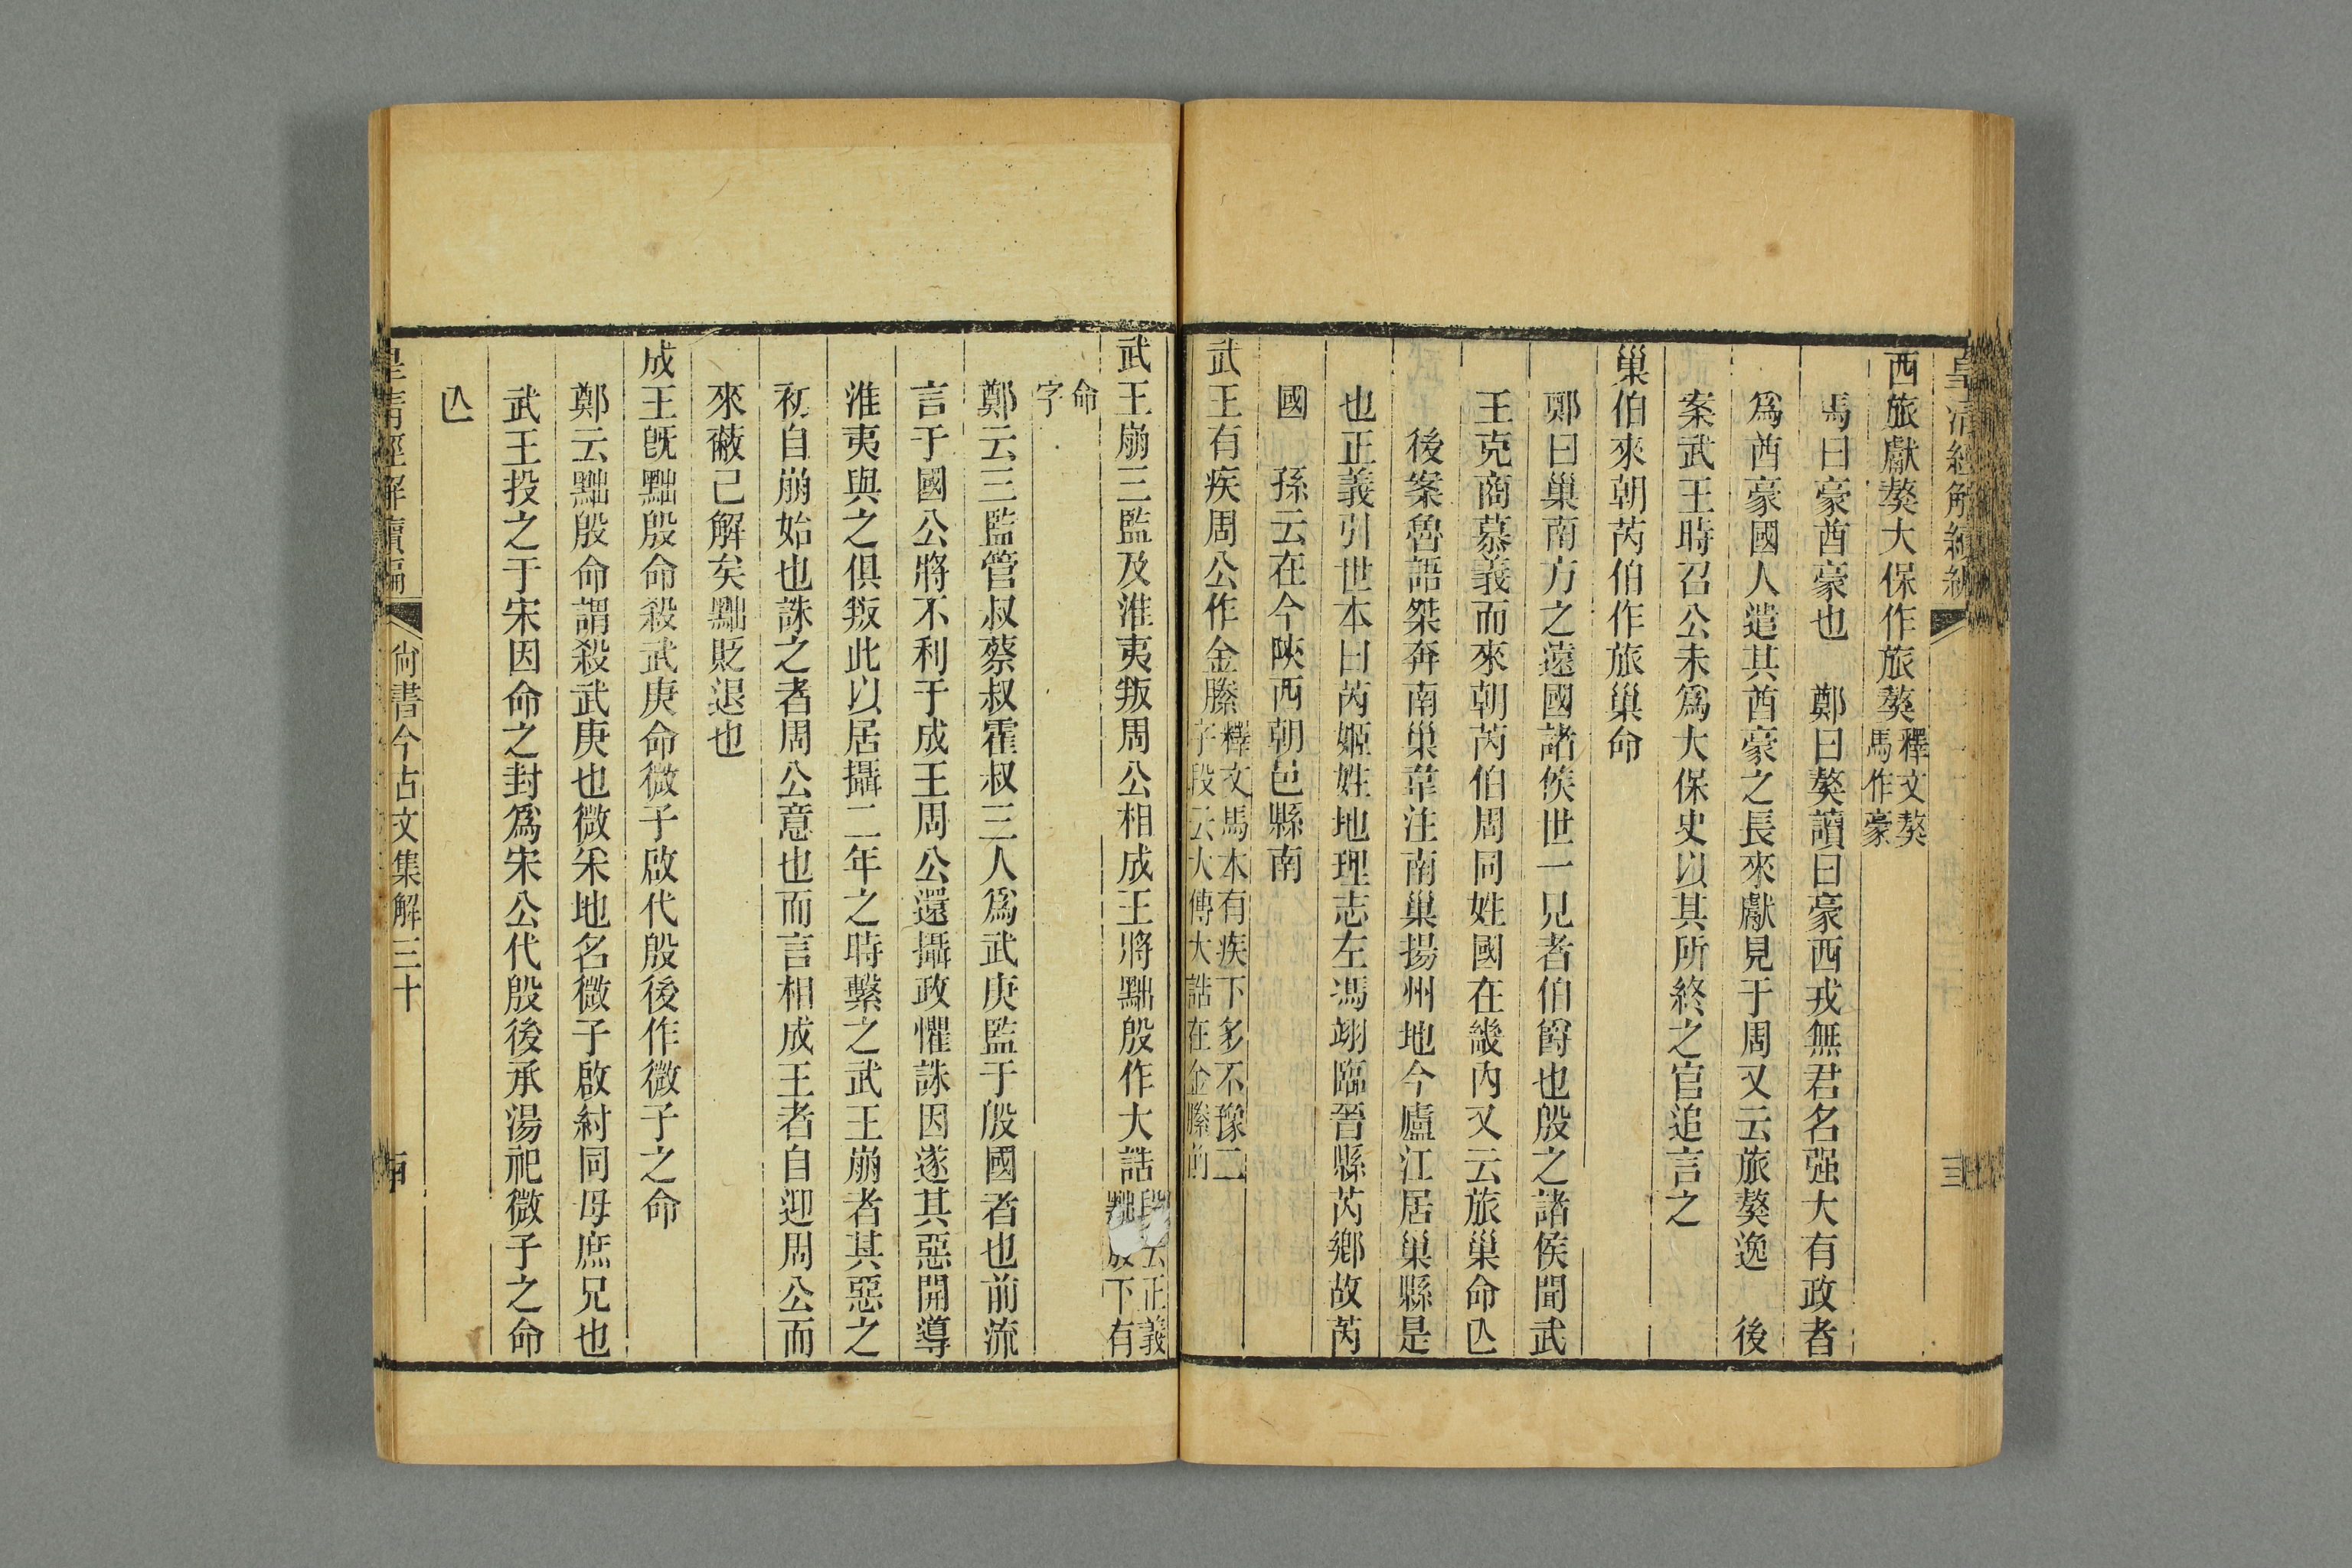 皇清經解續編
三
西旅獻獒大保作旅獒釋文獒馬作豪
馬曰豪酋豪也　鄭曰獒讀曰豪西戎無君名强大有政者
爲酋豪國人遣其酋豪之長來獻見于周又云旅獒逸　後
案武王時召公未爲大保史以其所終之官追言之
巢伯來朝芮伯作旅巢命
鄭曰巢南方之遠國諸侯世一見者伯爵也殷之諸侯聞武
王克商慕義而來朝芮伯周同姓國在畿內又云旅巢命亾
後案魯語桀奔南巢韋注南巢揚州地今廬江居巢縣是
也正義引世本曰芮姬姓地理志左馮翊臨晉縣芮鄉故芮
國　孫云在今陝西朝邑縣南
武王有疾周公作金縢釋文馬本有疾下多不豫二字段云大傳大誥在金縢前
武王崩三監及淮夷叛周公相成王將黜殷作大誥段云正義黜殷下有
命字
鄭云三監管叔蔡叔霍叔三人爲武庚監于殷國者也前流
言于國公將不利于成王周公還攝政懼誅因遂其惡開導
淮夷與之俱叛此以居攝二年之時繫之武王崩者其惡之
初自崩始也誅之者周公意也而言相成王者自迎周公而
來蔽已解矣黜貶退也
成王旣黜殷命殺武庚命微子啟代殷後作微子之命
鄭云黜殷命謂殺武庚也微采地名微子啟紂同母庶兄也
武王投之于宋因命之封爲宋公代殷後承湯祀微子之命
亾
皇清經解續編
尙書今古文集解三十